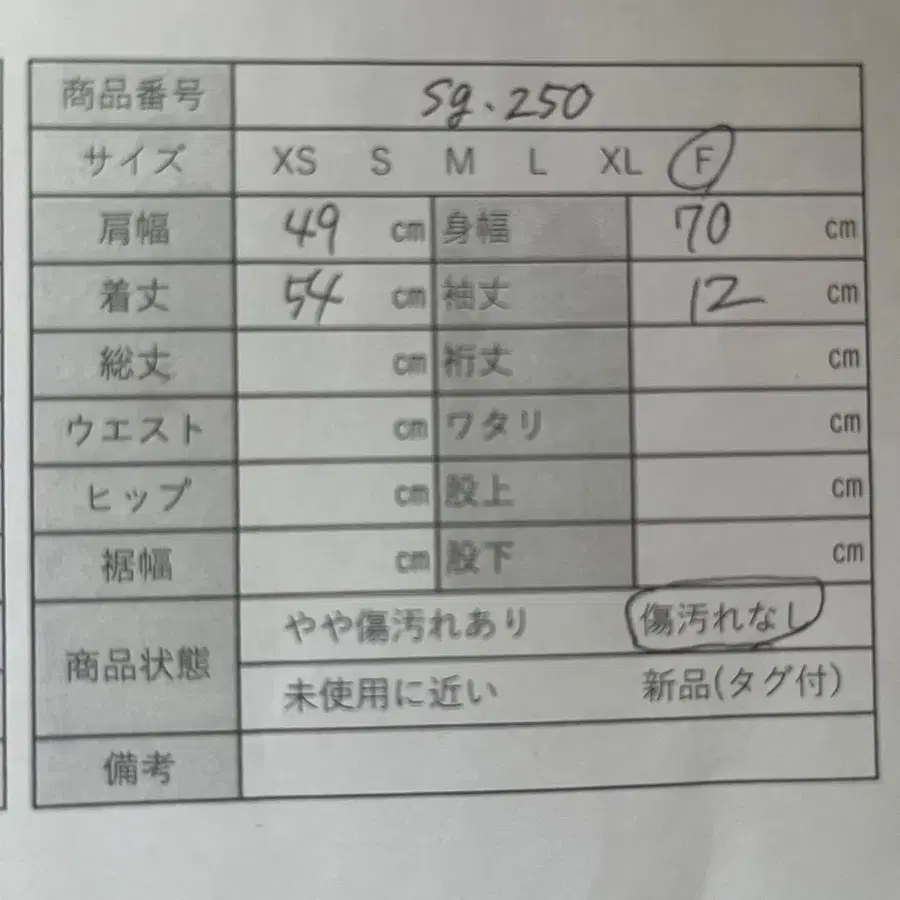 商品番号 Sg.250
サイズ XS S M L XL F
肩幅 49 cm 身幅 70 cm
着丈 54 cm 袖丈 12 cm
総丈 cm 裄丈 cm
ウエスト cm ワタリ cm
ヒップ cm 股上 cm
裾幅 cm 股下 cm
商品状態 やや傷汚れあり 傷汚れなし
未使用に近い 新品(タグ付)
備考